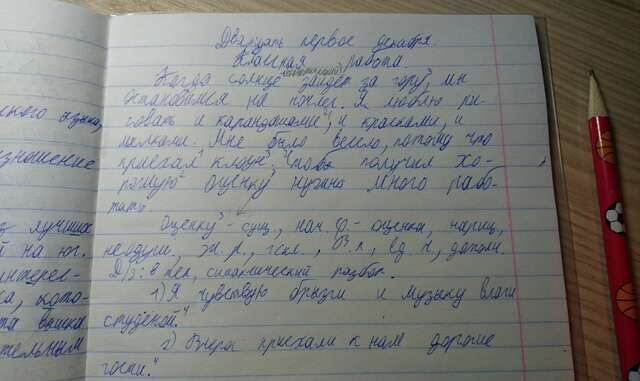 Двадцать первое декабря.
Классная работа.
Когда солнце зайдет за гору³, мы
остановимся на ночлег. Я люблю ри-
совать и карандашами, и красками, и
мелками. Мне было весело, потому что
приехал клоун³, чтобы получил хо-
рошую оценку нужно много рабо-
тать.
Оценку³ - сущ., нач. ф. - оценка, нариц,
неодуш., ж. р., 1 скл., В. п., ед. ч., дополн.
Д/з: в тел, синтаксический разбор.
1) Я чувствую брызги и музыку влаги
студеной.⁴
2) Вчера приехали к нам дорогие
гости.⁴
ского языка,
зношение
з лучших
й на юг.
интерес-
са, кото-
та
тельным